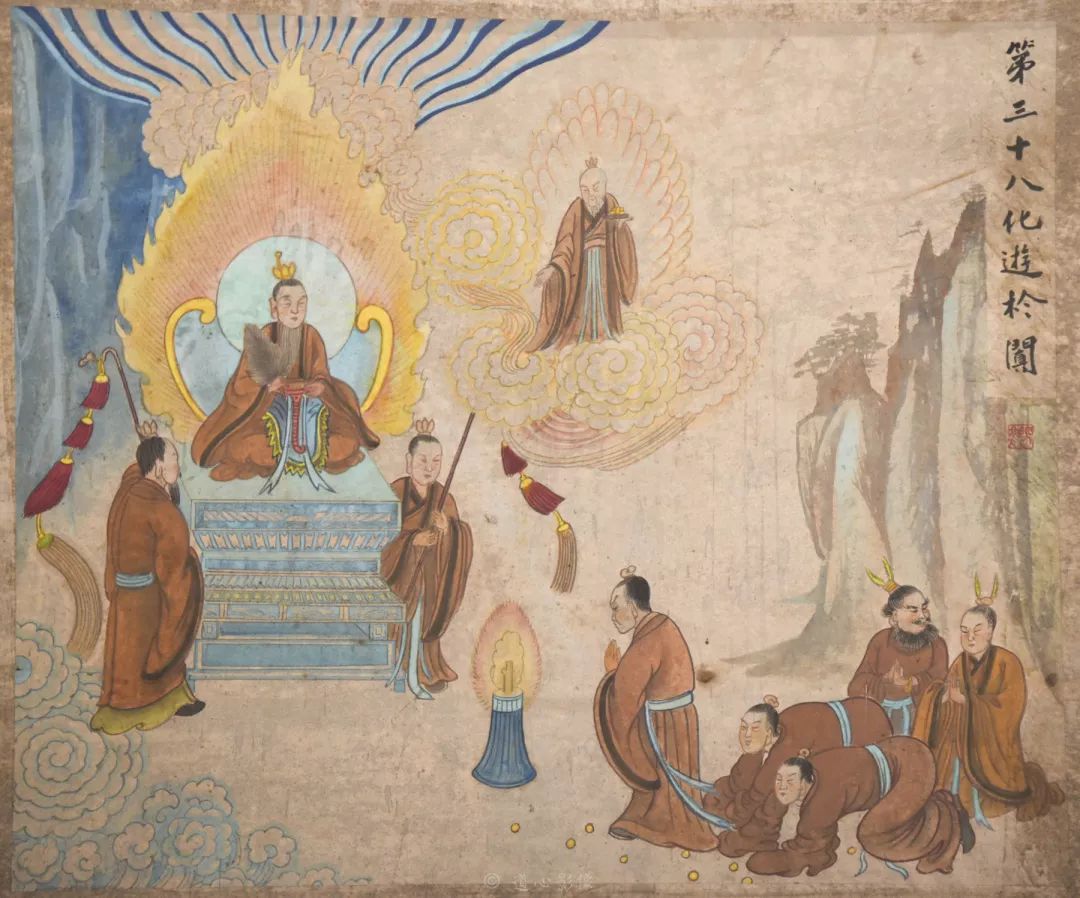 第三十八化遊於闐
© 道心影像